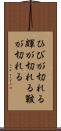 ひびが切れる
皹が切れる皸
が切れる